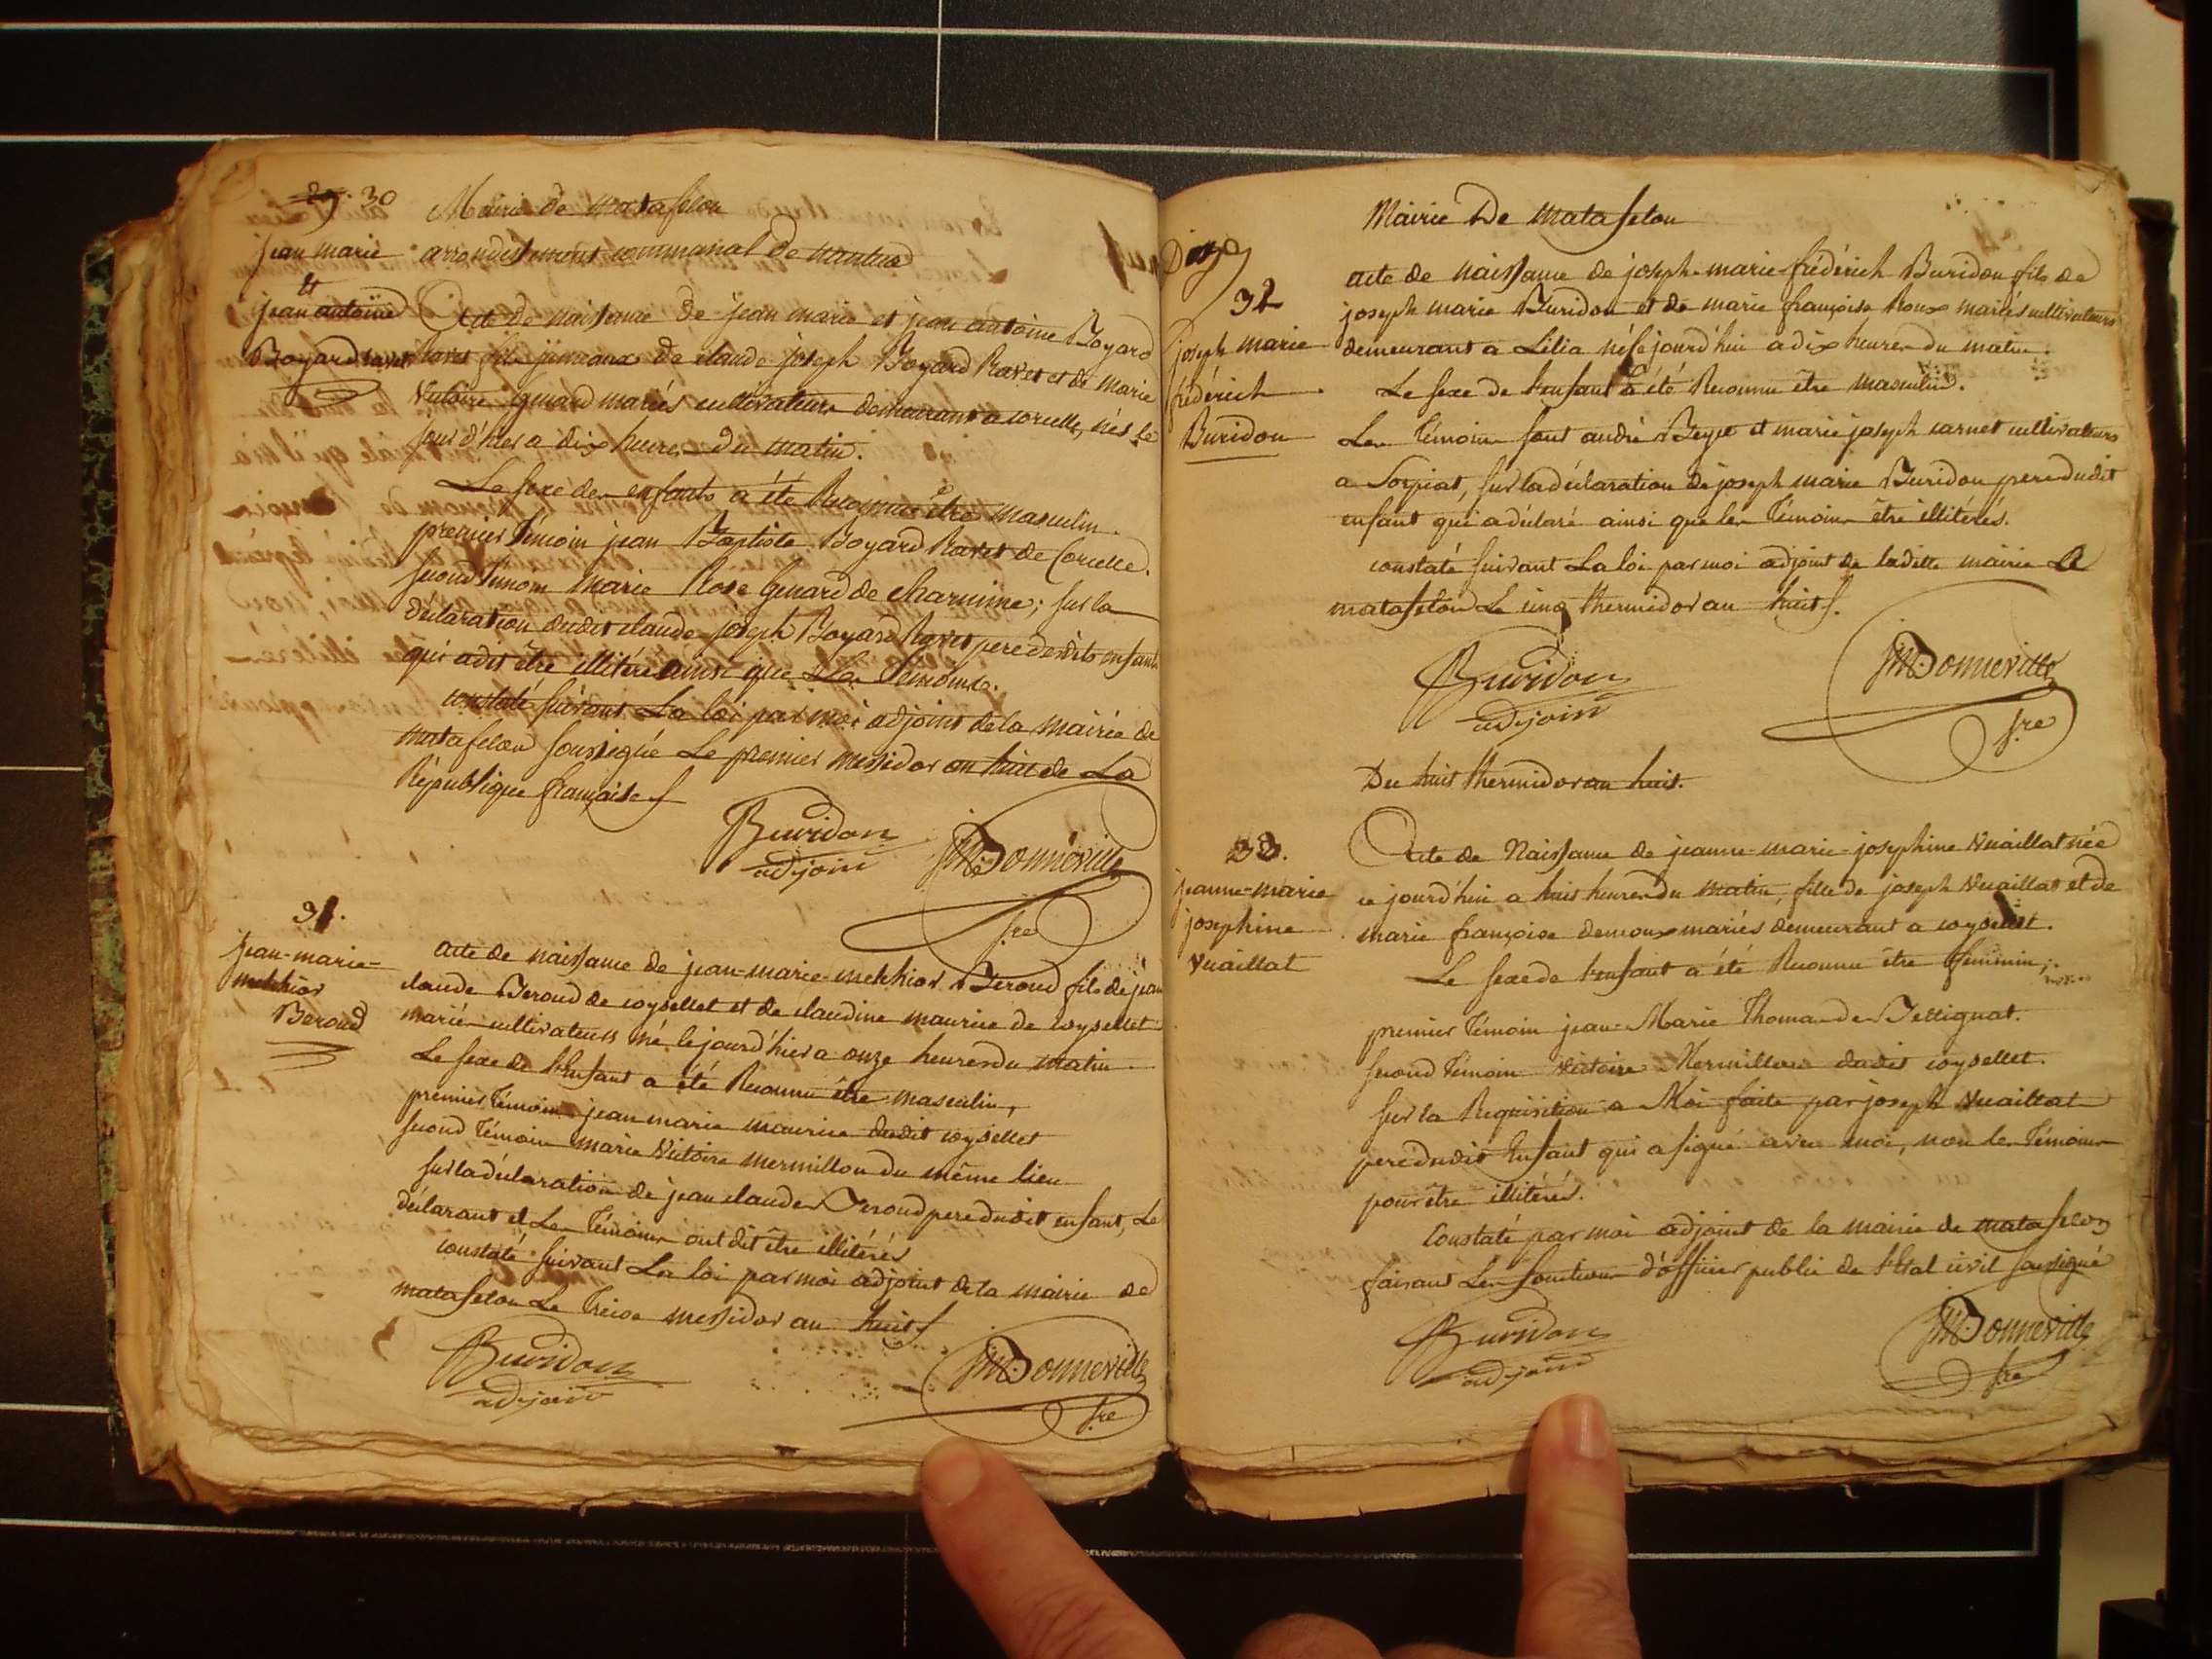 29. 30
Mairie de matafelon
jean marie
et
jean antoine
Boyard ravet
arrondissement communal de nantua
Acte de naissance de jean marie et jean antoine Boyard
ravet fils jumeaux de claude joseph Boyard Ravet et de marie
victoire Genard mariés cultivateurs demeurant a corcelle, nés le
jour d'hier a dix heures du matin.
Le sexe des enfants a été Reconnu être masculin.
premier Témoin jean Baptiste Boyard Ravet de Corcelle.
second Témoin marie Rose Genard de charmine; sur la
déclaration dudit claude joseph Boyard Ravet pere desdits enfants
qui a dit être illitéré ainsi que Les Témoins.
constaté suivant La loi par moi adjoint de la mairie de
matafelon soussigné Le premier messidor an huit de La
République française
Buvidon
adjoin
JMDonneville
sre
31.
jean-marie-
melchior
Beroud
acte de naissance de jean-marie-melchior Beroud fils de jean
claude Beroud de coysellet et de claudine maurice de coysellet
mariés cultivateurs né le jourd'hier a onze heures du matin
Le sexe de l'enfant a été Reconnu être masculin,
premier Témoin jean marie maurice dudit coysellet
second Témoin marie victoire mermillon du même lieu
sur la déclaration de jean claude Beroud pere dudit enfant, Le
déclarant et Les Témoins ont dit être illitérés
constaté suivant La loi par moi adjoint de la mairie de
matafelon Le Treize messidor an huit
Buvidon
adjoin
JMDonneville
sre
Mairie De matafelon
32
joseph marie
fréderich
Buvidon
acte de naissance de joseph-marie-fréderich Buvidon fils de
joseph marie Buvidon et de marie françoise Roux mariés cultivateurs
demeurant a Lilia né ce jourd'hui a dix heures du matin.
Le sexe de l'enfant a été Reconnu être masculin.
Les Témoins sont andré Beype et marie joseph carnet cultivateurs
a Sorpiat, sur la déclaration de joseph marie Buvidon pere dudit
enfant qui a déclaré ainsi que les Témoins être illitérés.
constaté suivant La loi par moi adjoint de ladite mairie De
matafelon Le cinq thermidor an huit.
Buvidon
adjoin
JMDonneville
sre
Du huit thermidor an huit.
33.
jeanne-marie
josephine
Vuaillat
Acte de Naissance de jeanne-marie-josephine Vuaillat née
ce jourd'hui a huit heures du matin, fille de joseph Vuaillat et de
marie françoise demoux mariés demeurant a coysellet.
Le sexe de l'enfant a été Reconnu être féminin;
premier Témoin jean-Marie Thomas de Bettignat.
second Témoin victoire Mermillon dudit coysellet.
sur la Requisition a Moi faite par joseph Vuaillat
pere dudit Enfant qui a signé avec moi, non les Témoins
pour être illitérés.
Constaté par moi adjoint de la mairie de matafelon
faisant Les fonctions d'officier public de l'Etat civil soussigné
Buvidon
adjoin
JMDonneville
sre